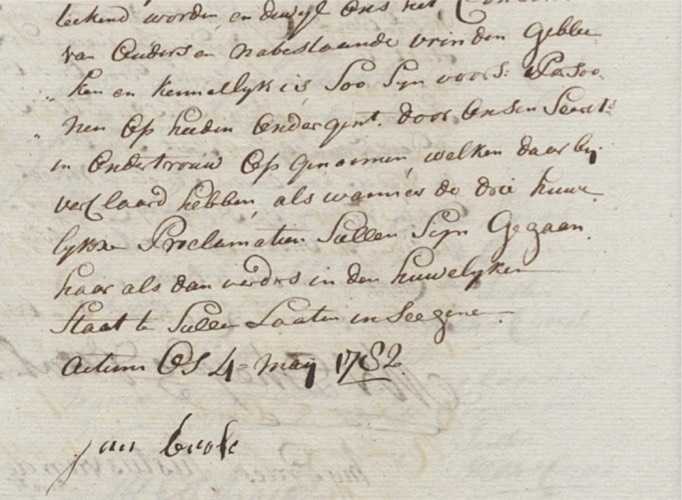 teekend worden, en dewyl ons het Consent
van Ouders en nabestaande vrinden geblee
" ken en kennellyk is Soo Syn voors: Persoo
" nen Op heeden Ondergent. door Onsen Secrts:
in Ondertrouw Op genoomen welken daar by
verclaard hebben, als wanneer de drie huwe
lykse Proclamatien Sullen Syn Gegaan
haar als dan verders in den huwelyken
Staat te Sullen Laaten in Seegene
Actum OS 4= may 1782.
jan